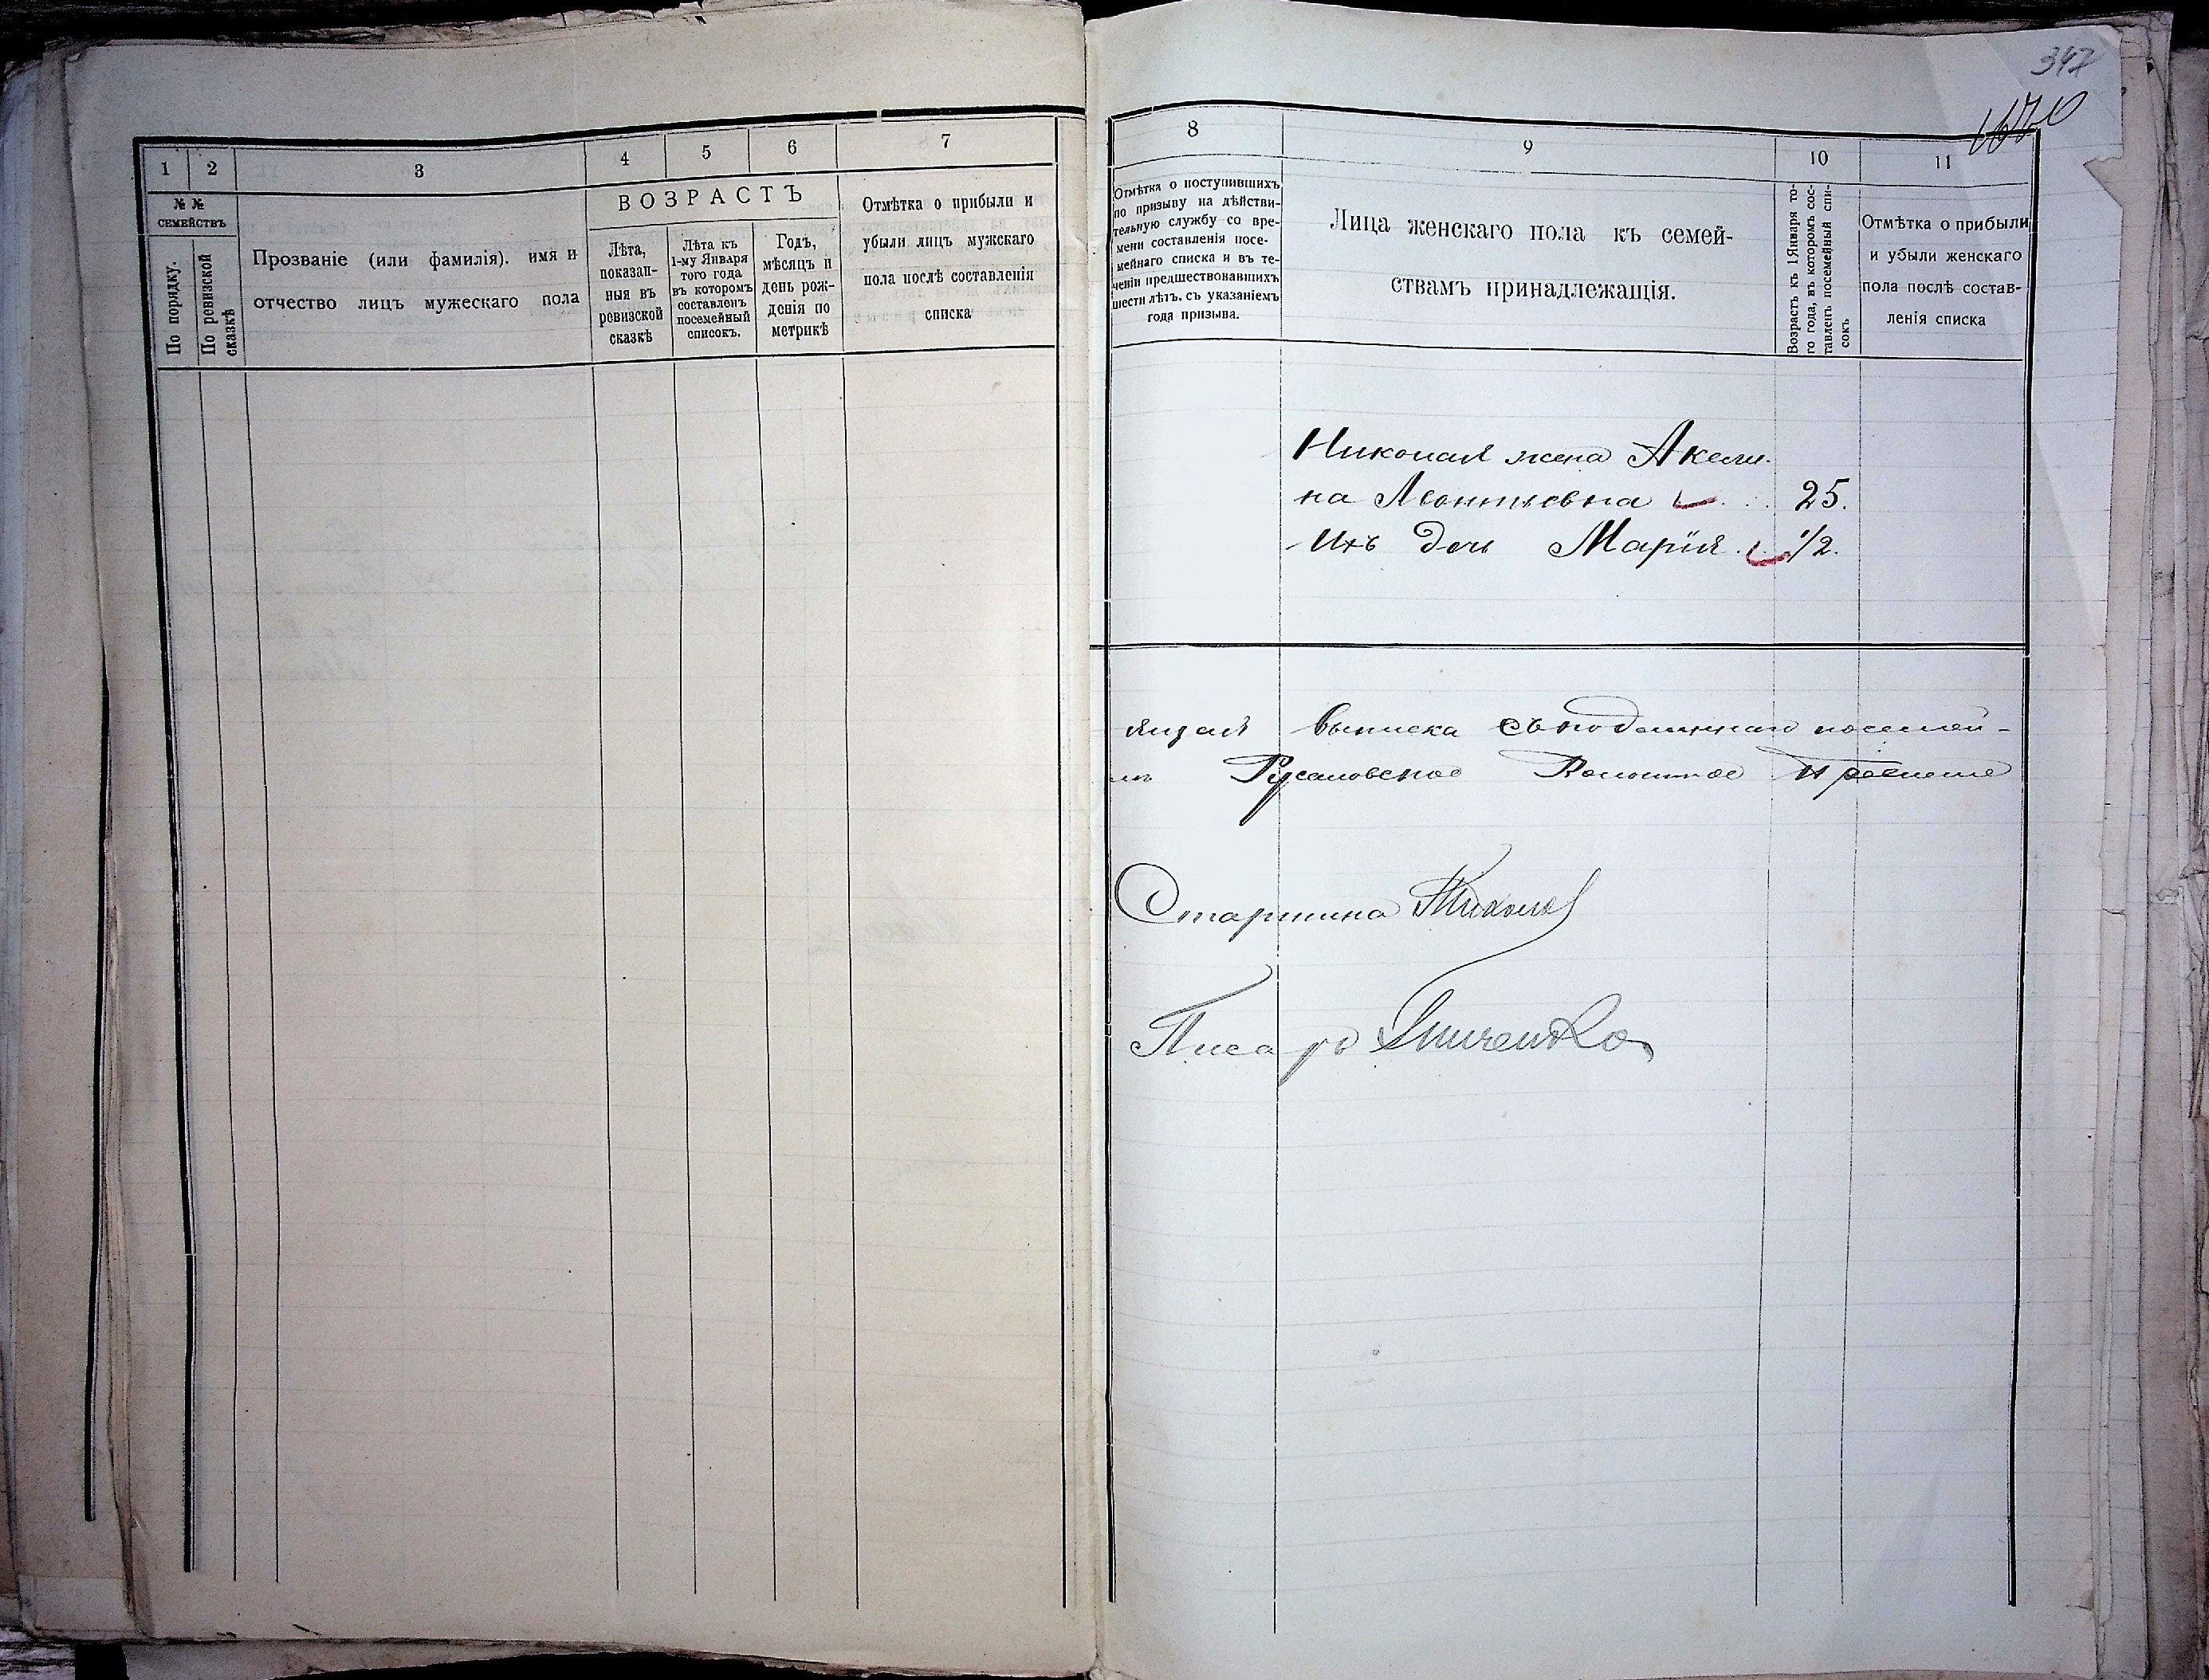 347
1 2 3 4 5 6 7
№ №
СЕМЕЙСТВЪ
По порядку.
По ревизской
сказкѣ
Прозваніе (или фамилія). имя и
отчество лицъ мужескаго пола
ВОЗРАСТЪ
Лѣта,
показан-
ныя въ
ревизской
сказкѣ
Лѣта къ
1-му Января
того года
въ которомъ
составленъ
посемейный
списокъ.
Годъ,
мѣсяцъ и
день рож-
денія по
метрикѣ
Отмѣтка о прибыли и
убыли лицъ мужскаго
пола послѣ составленія
списка
8 9 10 11
Отмѣтка о поступившихъ
по призыву на дѣйстви-
тельную службу со вре-
мени составленія посе-
мейнаго списка и въ те-
ченіи предшествовавшихъ
шести лѣтъ. съ указаніемъ
года призыва.
Лица женскаго пола къ семей-
ствамъ принадлежащія.
Возрастъ къ 1 Января то-
го года, въ которомъ сос-
тавленъ посемейный спи-
сокъ
Отмѣтка о прибыли
и убыли женскаго
пола послѣ состав-
ленія списка
Николая жена Акели-
на Леонтьевна 25.
Ихъ дочь Марія. 1/2.
выписка съ подлиннаго посемей-
Русановское Волостное Правленіе
Старшина Тихонов
Писарь